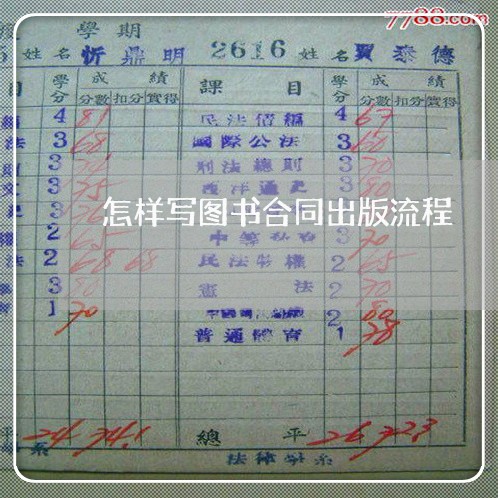 7788.com
學期
姓名 忻鼎明 2616 姓名 賈泰德
目 學分 成績 課目 學分 成績
分數 扣分 實得 分數 扣分 實得
4 81 民法債編 4 67
法 3 68 國際公法 3 60
3 刑法總則 3 70
文 3 75 西洋通史 3 80
怎样写图书合同出版流程
2 65 3 70
法 2 68 68 民法物權 2 65
3 80 憲法 2 70
1 70 2 80
普通體育 1 78
平 24 74.1 總平 26 72.3
系 法律學系